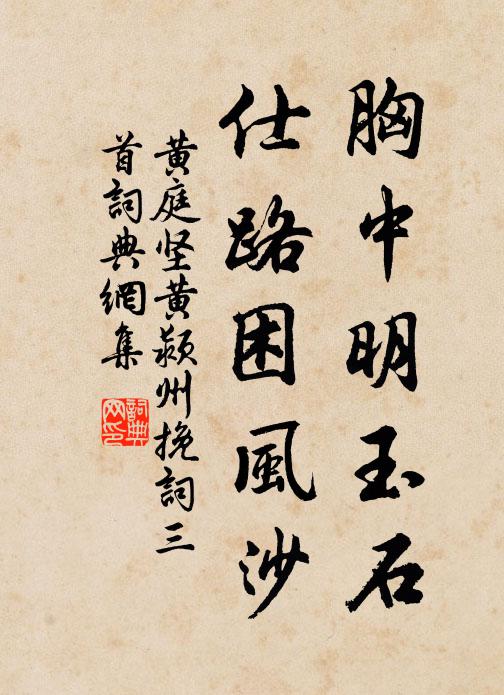 胸中明玉石
仕路困風沙
黄庭坚黄颍州挽詞三
首詞典網集
詞典
网印